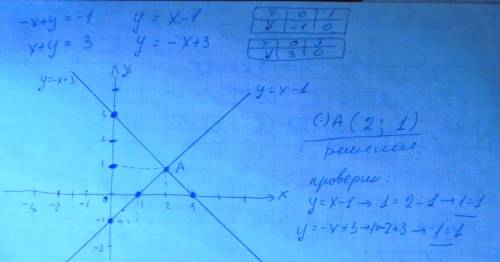 -x+y = -1    y = x-1
x | 0 | 1
y | -1 | 0
x+y = 3    y = -x+3
x | 0 | 3
y | 3 | 0
y=-x+3
y
y=x-1
3
2
1
A
x
-3 -2 -1 1 2 3
-1
-2
(·) A (2; 1)
решение.
проверки:
y=x-1 → 1=2-1 → 1=1
y=-x+3 → 1=-2+3 → 1=1